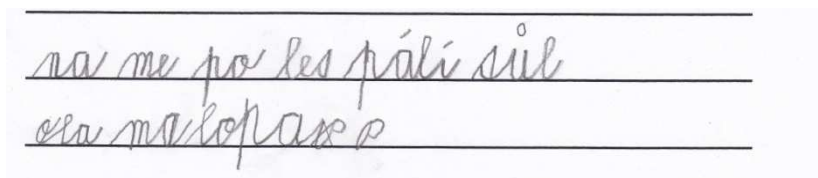 na me po les pálí sůl
ola malopase e